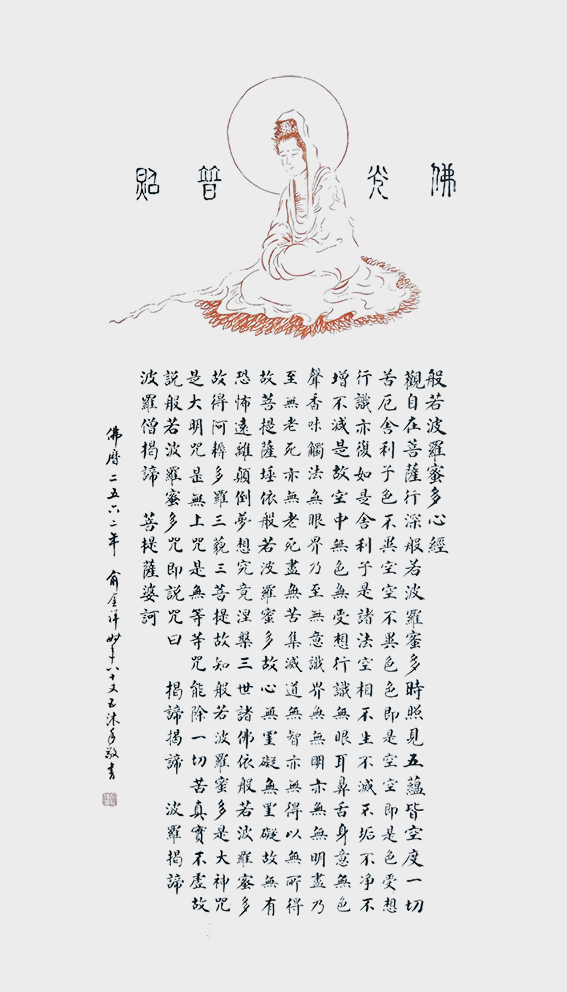 佛光普照
般若波羅蜜多心經
觀自在菩薩行深般若波羅蜜多時照見五蘊皆空度一切
苦厄舍利子色不異空空不異色色即是空空即是色受想
行識亦復如是舍利子是諸法空相不生不滅不垢不净不
增不減是故空中無色無受想行識無眼耳鼻舌身意無色
聲香味觸法無眼界乃至無意識界無無明亦無無明盡乃
至無老死亦無老死盡無苦集滅道無智亦無得以無所得
故菩提薩埵依般若波羅蜜多故心無罣礙無罣礙故無有
恐怖遠離顛倒夢想究竟涅槃三世諸佛依般若波羅蜜多
故得阿耨多羅三藐三菩提故知般若波羅蜜多是大神咒
是大明咒是無上咒是無等等咒能除一切苦真實不虛故
說般若波羅蜜多咒即說咒曰 揭諦揭諦 波羅揭諦
波羅僧揭諦 菩提薩婆訶
佛曆二五六二年 俞金 八十又五沐手敬書